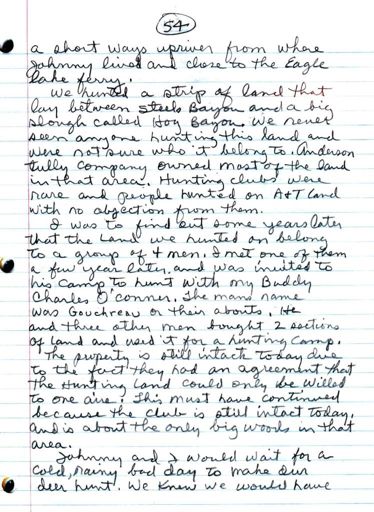 54
a short ways upriver from where
Johnny lived and close to the Eagle
lake ferry.
We hunted a strip of land that
lay between Steele Bayou and a big
slough called Hog Bayou. We never
seen anyone hunting this land and
were not sure who it belong to. Anderson
Tully Company owned most of the land
in that area. Hunting clubs were
rare and people hunted on A&T land
with no objection from them.
I was to find out some years later
that the land we hunted on belong
to a group of 4 men. I met one of them
a few year later, and was invited to
his camp to hunt with my Buddy
Charles O'conner. The mans name
was Gouchreau or their abouts. He
and three other men bought 2 sections
of land and used it for a hunting camp.
The property is still intact today due
to the fact they had an agreement that
the Hunting Land could only be willed
to one aire. This must have continued
because the club is still intact today,
and is about the only big woods in that
area.
Johnny and I would wait for a
cold, rainy bad day to make our
deer hunt. We knew we would have